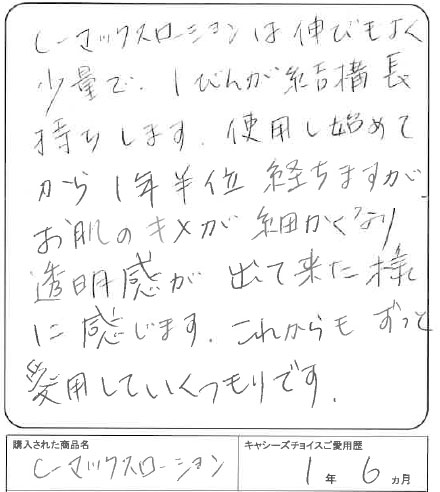 C-マックスローションは伸びもよく
少量で、1びんが結構長
持ちします。使用し始めて
から1年半位経ちますが、
お肌のキメが細かくなり
透明感が出て来た様
に感じます。これからもずっと
愛用していくつもりです。
購入された商品名
キャシーズチョイスご愛用歴
C-マックスローション
1年6ヵ月